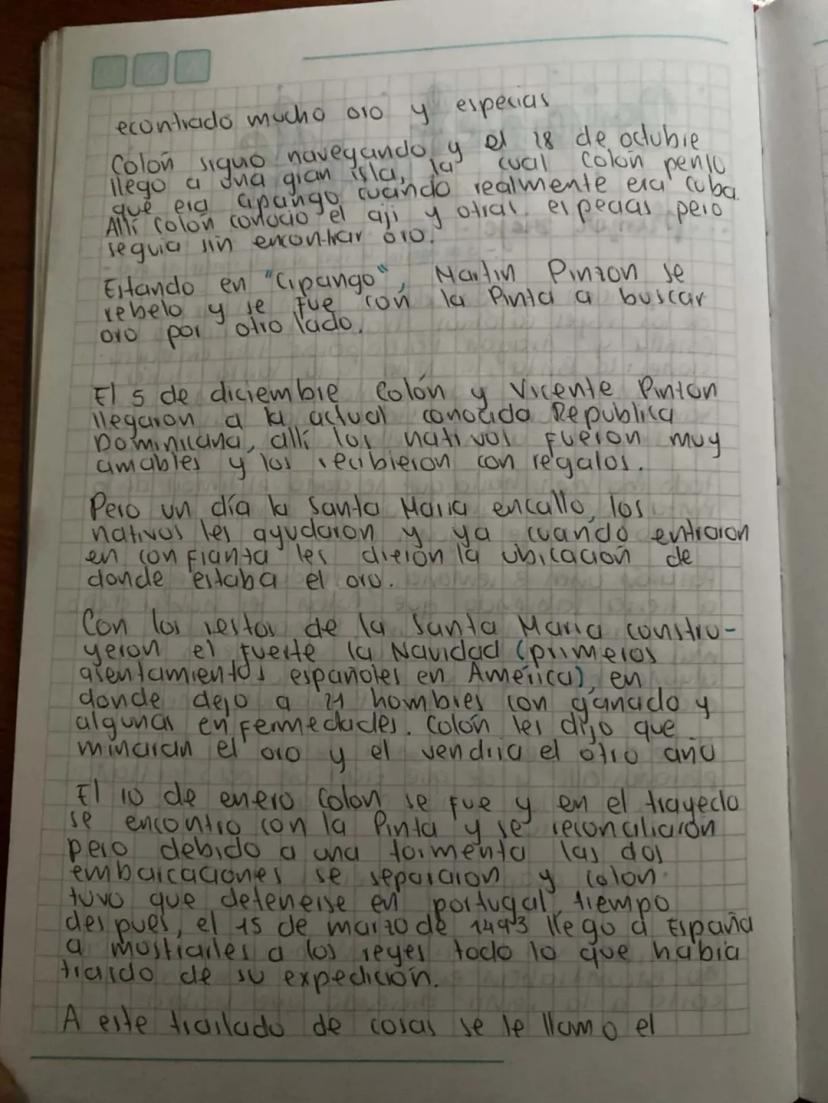 econtrado mucho oro y especias
Colón siguo navegando y el 28 de octubre
llego a una gran isla, la cual Colón penso
que era cipango cuando realmente era cuba.
Allí Colón conocio el aji y otras especias pero
seguia sin encontrar oro.
Estando en "Cipango", Martin Pinzon se
rebelo y se fue con la Pinta a buscar
oro por otro lado.
El 5 de diciembre Colón y Vicente Pinzon
llegaron a la actual conocida Republica
Dominicana, allí los nativos fueron muy
amables y los recibieron con regalos.
Pero un día la Santa Maria encallo, los
nativos les ayudaron y ya cuando entraron
en confianza les dieron la ubicación de
donde estaba el oro.
Con los restos de la Santa Maria constru-
yeron el fuerte la Navidad (primeros
asentamientos españoles en América), en
donde dejo a 21 hombres con ganado y
algunas enfermedades. Colón les dijo que
minaran el oro y el vendria el otro año
El 10 de enero Colon se fue y en el trayecto
se encontro con la Pinta y se reconciliaron
pero debido a una tormenta las dos
embarcaciones se separaron y colon
tuvo que detenerse en portugal, tiempo
despues, el 15 de marzo de 1493 llego a España
a mostrarles a los reyes todo lo que habia
traido de su expedición.
A este traslado de cosas se le llamo el